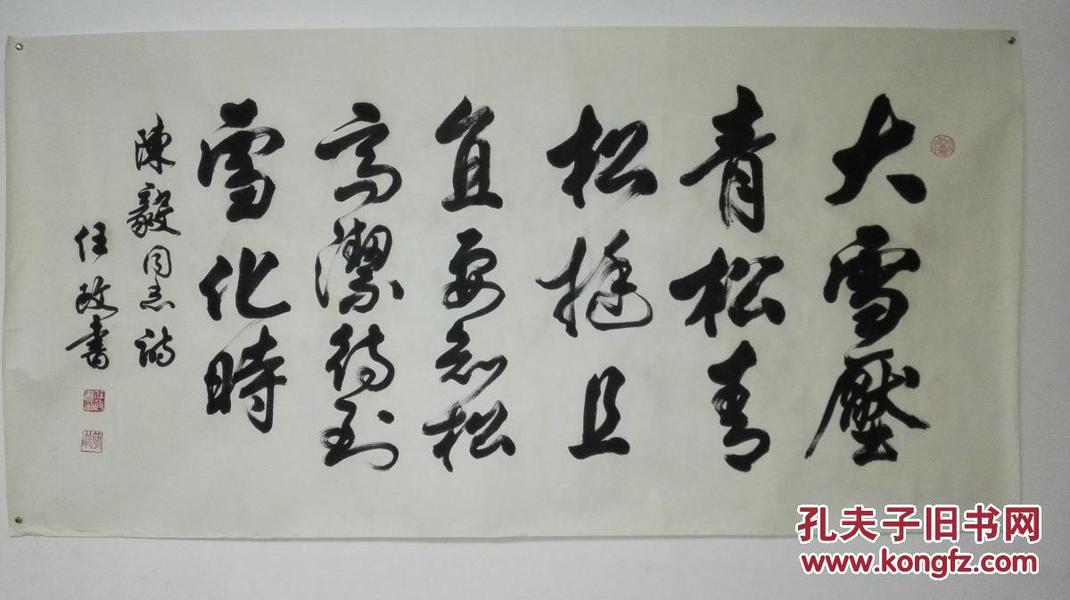 大雪壓
青松青
松挺且
直要知松
高潔待到
雪化時
陳毅同志詩
任政書
孔夫子旧书网
www.kongfz.com